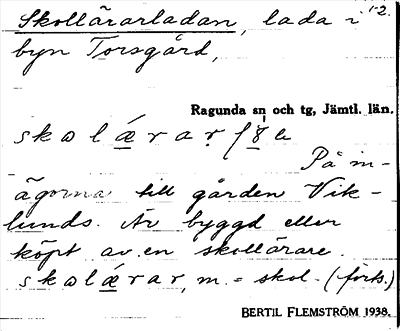 Skollärarladan, lada i 1-2.
byn Torsgård,
Ragunda sn och tg, Jämtl. län.
På in-
ägorna till gården Vik-
lunds. Är byggd eller
köpt av en skollärare.
skolǽrar, m. = skol- (forts.)
BERTIL FLEMSTRÖM 1938.